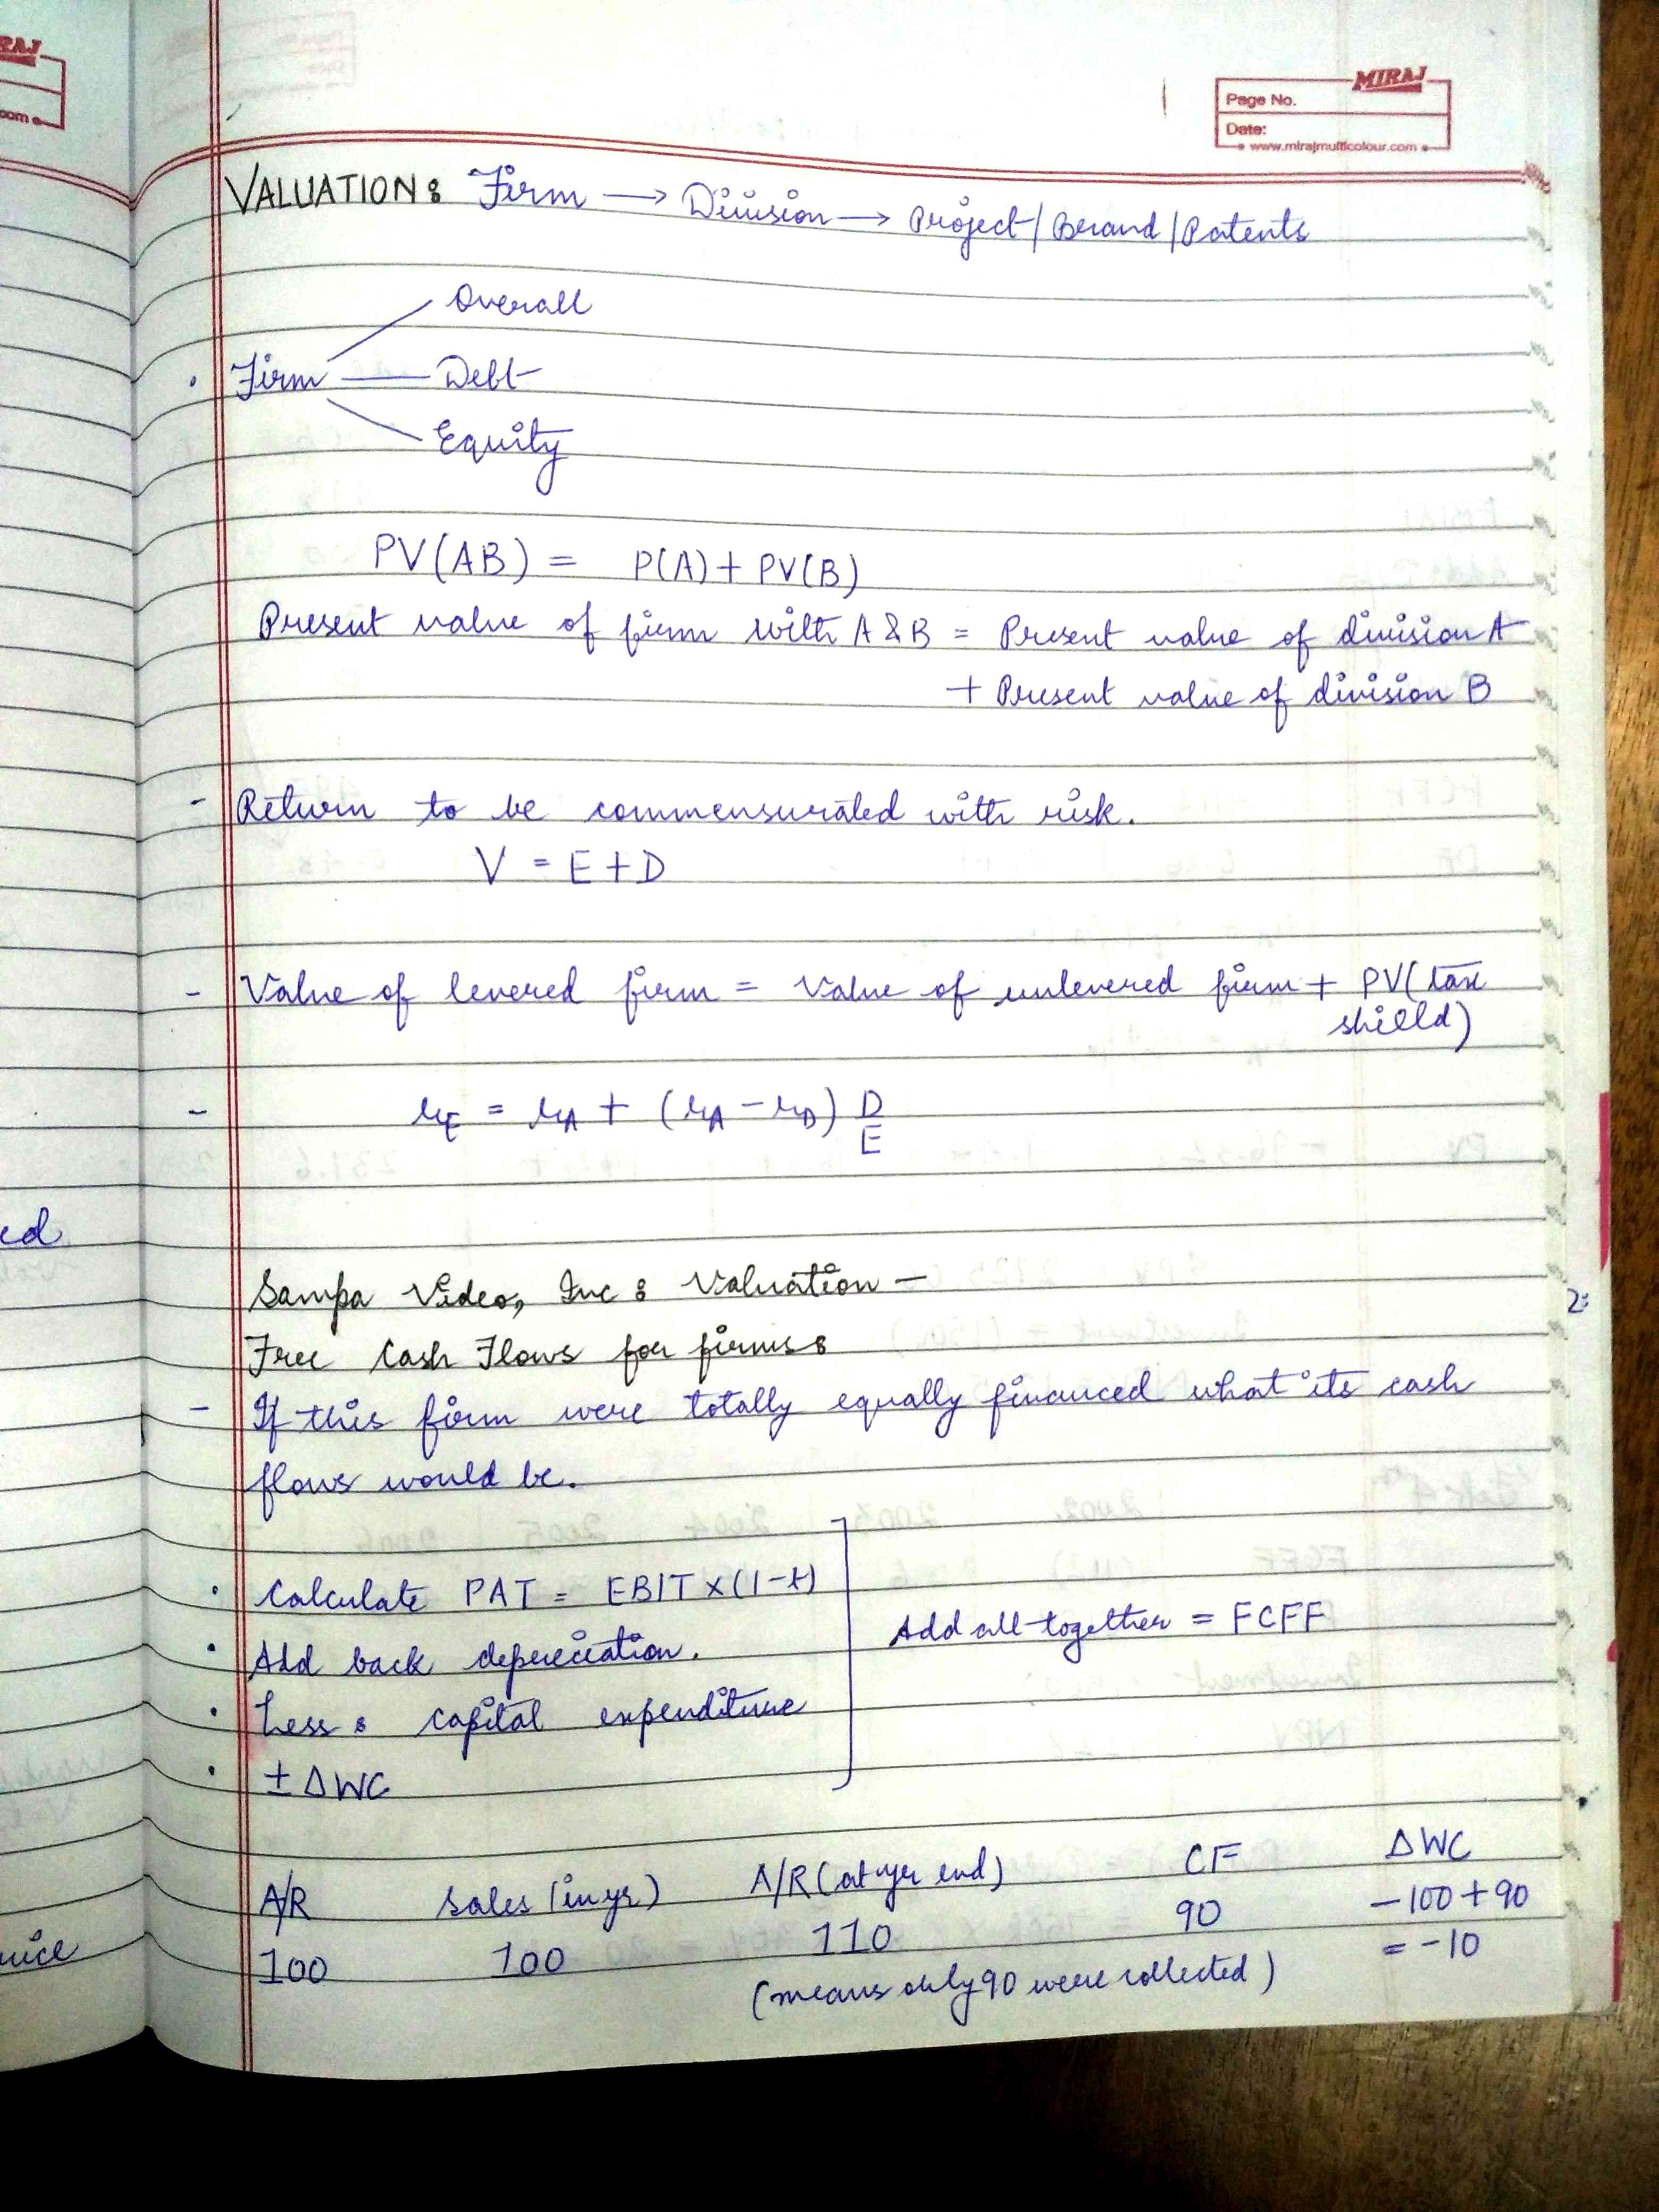 RAJ
com
MIRAJ
Page No.
Date:
www.mirajmulticolour.com
VALUATION: Firm → Division → Project/Brand/Patents
Overall
· Firm Debt
Equity
PV(AB) = P(A) + PV(B)
Present value of firm with A & B = Present value of division A
+ Present value of division B
- Return to be commensurated with risk.
V = E + D
- Value of levered firm = Value of unlevered firm + PV(tax
shield)
- rE = rA + (rA - rD) D/E
ed
Sampa Video, Inc : Valuation -
Free Cash Flows for firms:
- If this firm were totally equally financed what its cash
flows would be.
· Calculate PAT = EBIT x (1-t)
· Add back depreciation.
Add all together = FCFF
· Less: capital expenditure
· ± ΔWC
A/R Sales (in yr) A/R (at yr end) CF ΔWC
100 100 110 90 -100+90
= -10
(means only 90 were collected)